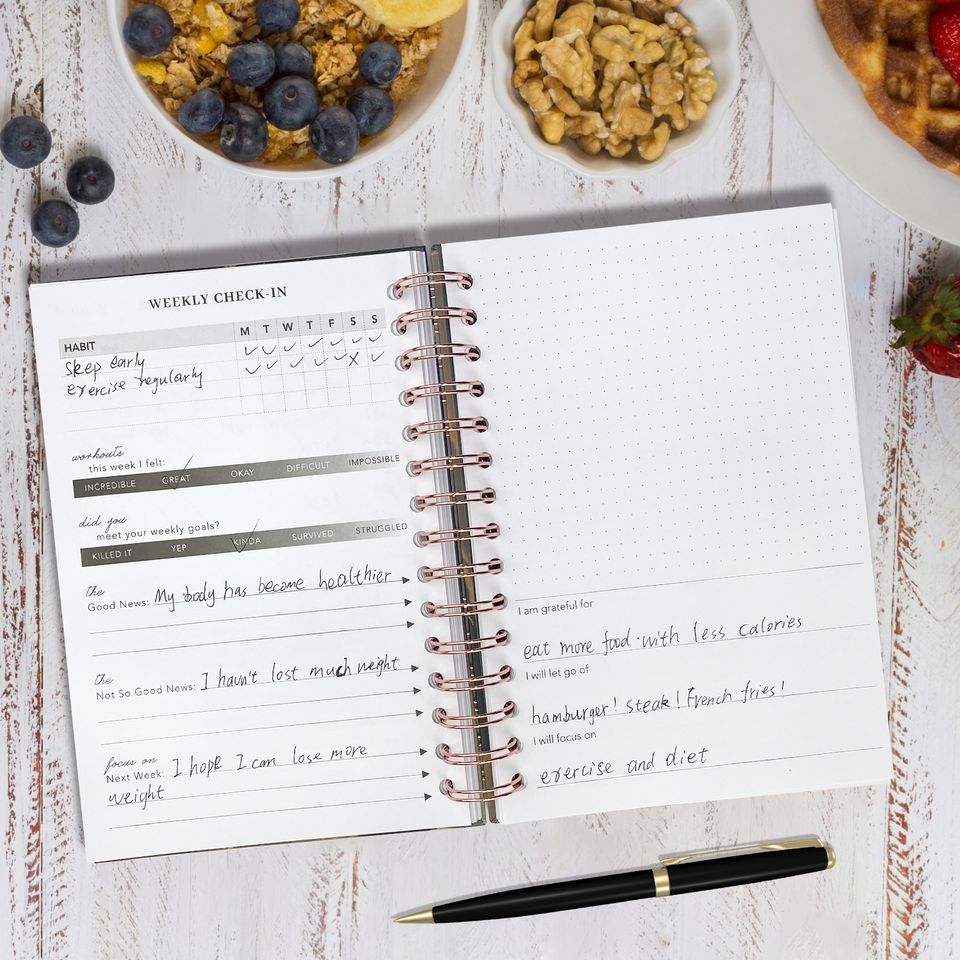 WEEKLY CHECK-IN
HABIT M T W T F S S
Sleep early ✓ ✓ ✓ ✓ ✓ ✓ ✓
exercise regularly ✓ ✓ ✓ ✓ ✓ X ✓
workouts
this week I felt:
INCREDIBLE GREAT OKAY DIFFICULT IMPOSSIBLE
did you
meet your weekly goals?
KILLED IT YEP KINDA SURVIVED STRUGGLED
the
Good News: My body has become healthier
the
Not So Good News: I havn't lost much weight
focus on
Next Week: I hope I can lose more
weight
I am grateful for
eat more food with less calories
I will let go of
hamburger! steak! French fries!
I will focus on
exercise and diet